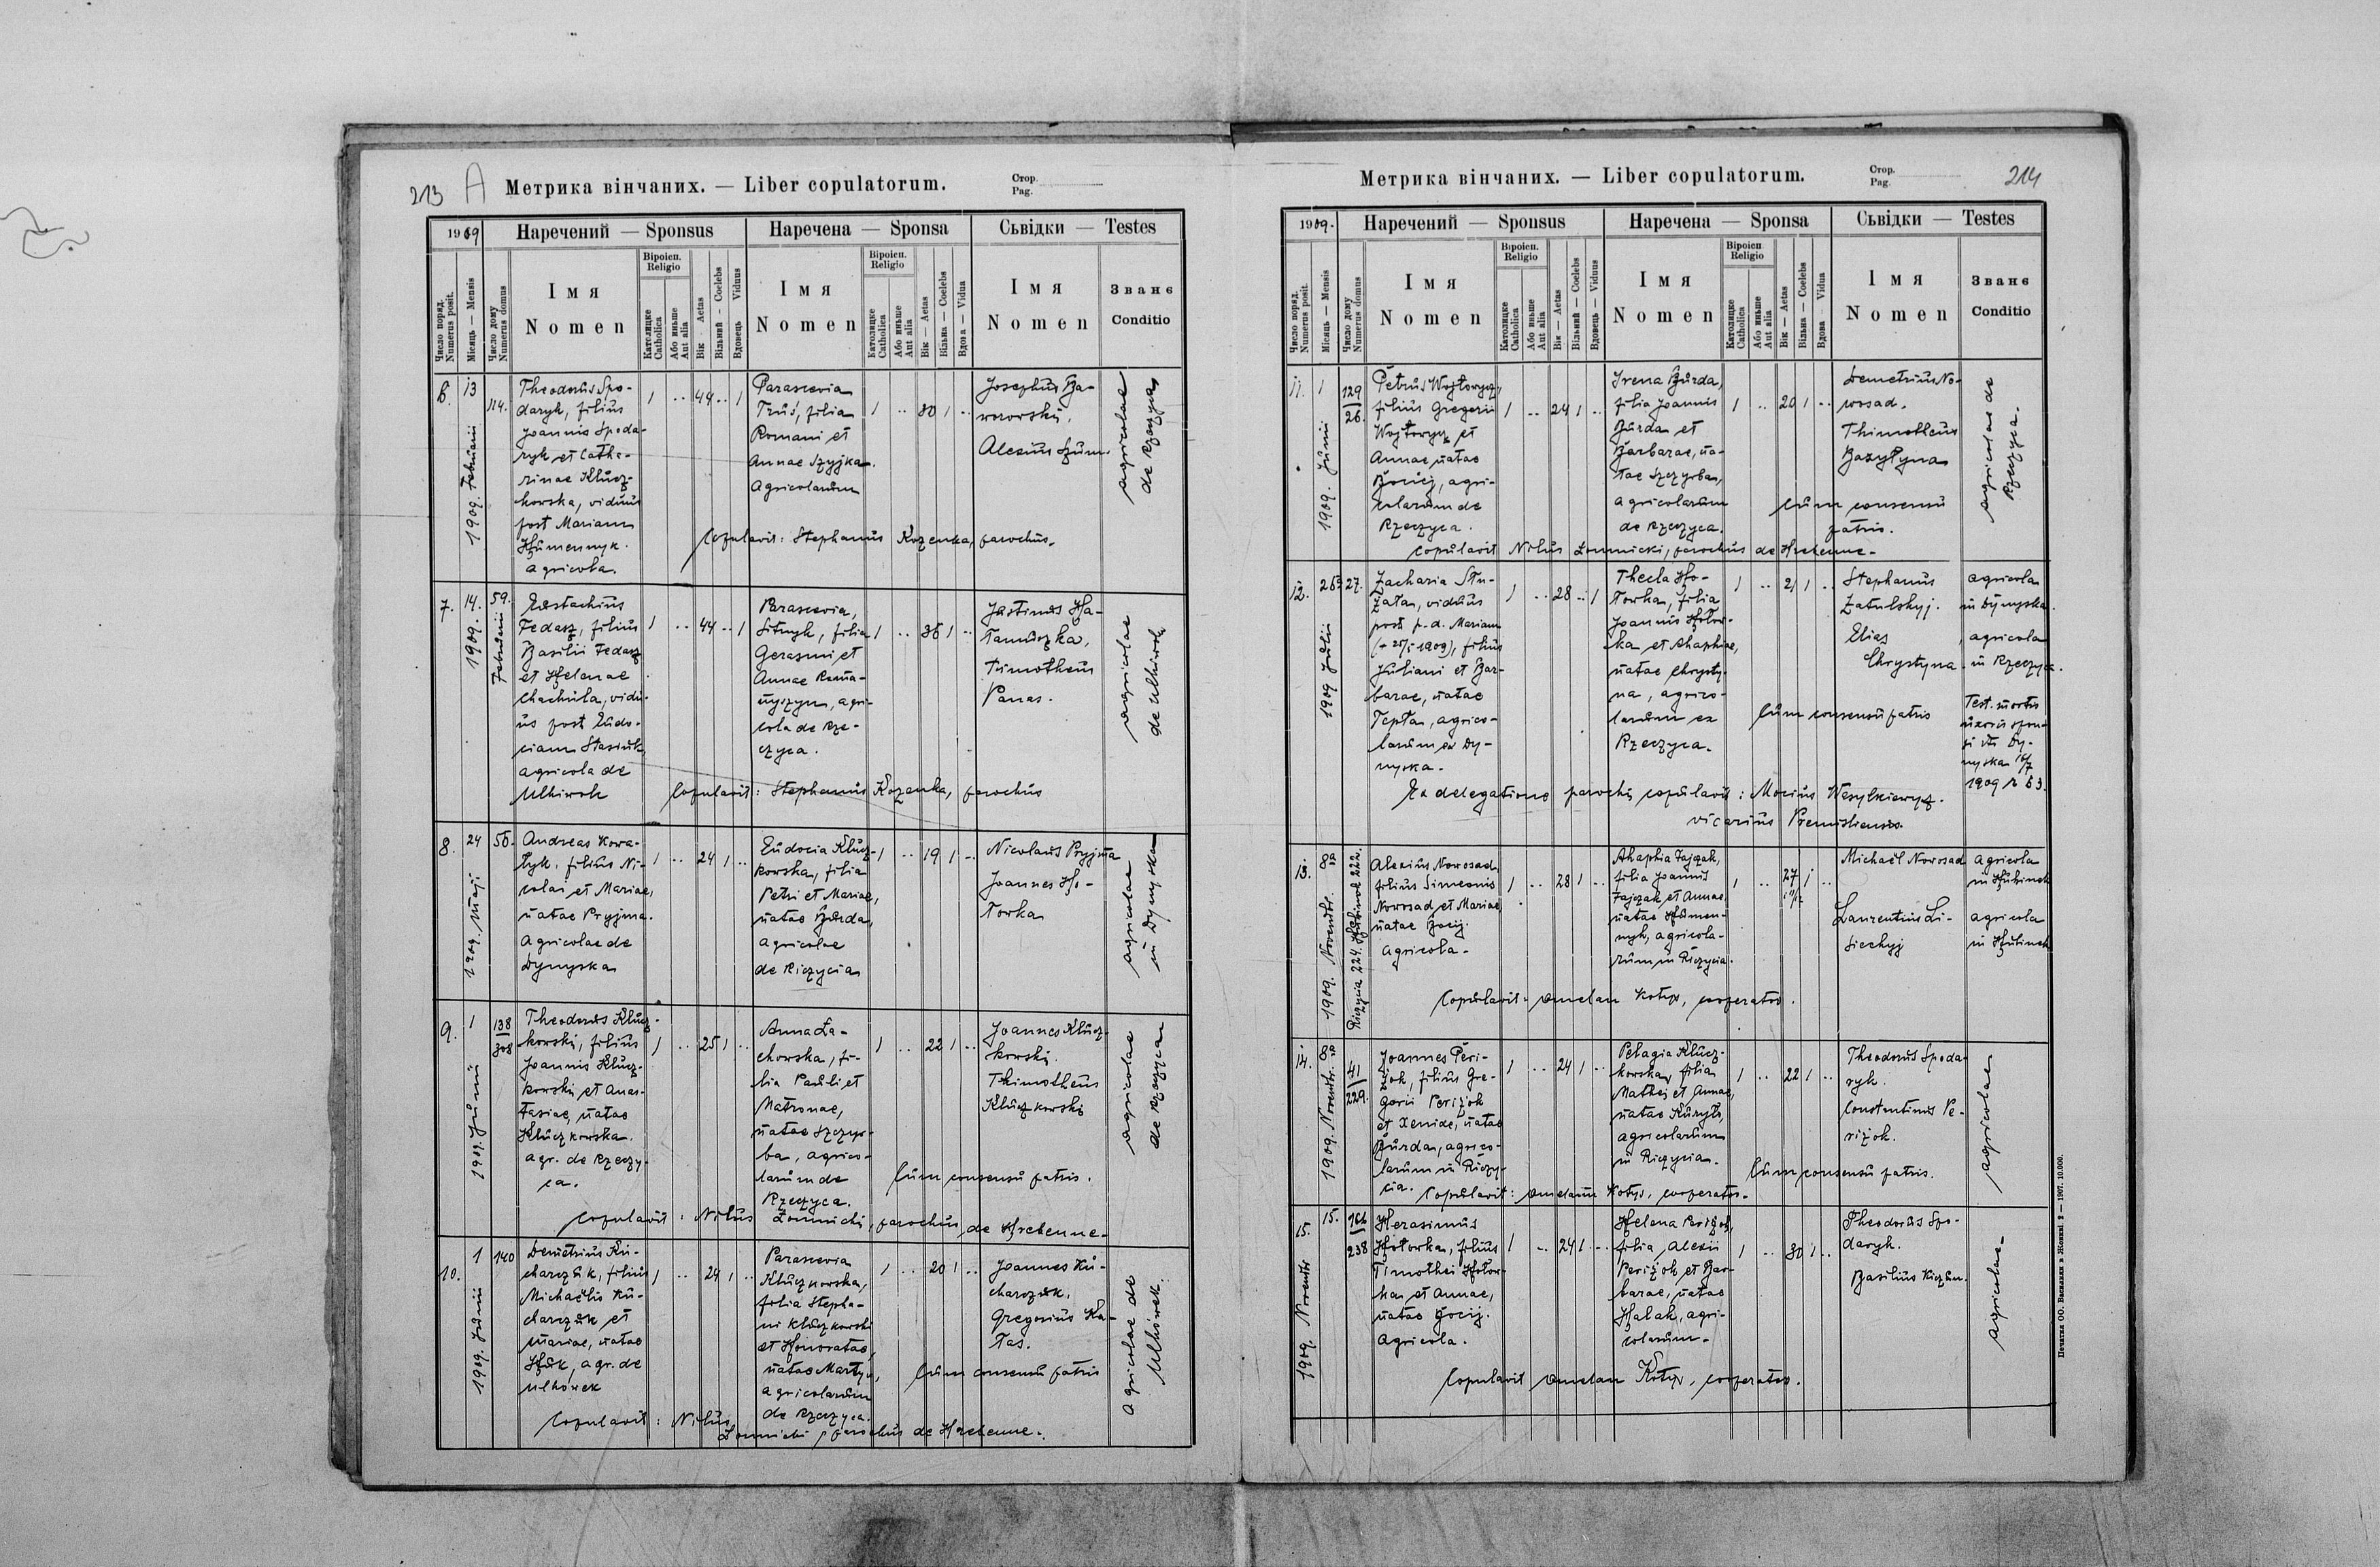 213 A Метрика вінчаних. — Liber copulatorum. Стор. Pag.
1909 Наречений — Sponsus Наречена — Sponsa Сьвідки — Testes
Число поряд. Numerus posit.
Місяць — Mensis
Число дому Numerus domus
Імя Nomen
Віроісп. Religio
Католицке Catholica
Або иньше Aut alia
Вік — Aetas
Вільний — Coelebs
Вдовець Viduus
Імя Nomen
Віроісп. Religio
Католицке Catholica
Або иньше Aut alia
Вік — Aetas
Вільна — Coelebs
Вдова — Vidua
Імя Nomen
Званє Conditio
6. 13 Februarii 1909. 114.
Theodorus Spo-
daryk, filius
Joannis Spoda-
ryk et Catha-
rinae Klucz-
kowska, viduus
post Mariam
Humennyk.
agricola.
1 .. 44 .. 1
Parascevia
Truś, filia
Romani et
Annae Szyjka.
Agricolarum
1 .. 30 1 ..
Josephus Ja-
worowski.
Alexius Szum.
agricolae
de Rzeczyca
Copulavit: Stephanus Kozenka, parochus.
7. 14. Februarii 1909. 59.
Eustachius
Fedasz, filius
Basilii Fedasz
et Helenae
Chachuła, vidu-
us post Eudo-
ciam Stasiuk,
agricola de
Ulhiwok
1 .. 44 .. 1
Parascevia,
Sitnyk, filia
Gerasmi et
Annae Roma-
nyszyn, agri-
cola de Rze-
czyca.
1 .. 36 1 ..
Justinus Ha-
tamuszka,
Timotheus
Panas.
agricolae
de Ulhiwok
Copulavit: Stephanus Kozenka, parochus
8. 24 Maji 1909. 56.
Andreas Kowa-
łyk, filius Ni-
colai et Mariae,
natae Pryjma.
Agricolae de
Dynyska
1 .. 24 1 ..
Eudocia Klucz-
kowska, filia
Petri et Mariae,
natae Burda,
agricolae
de Riczycia
1 .. 19 1 ..
Nicolaus Pryjma
Joannes Ho-
łowka
agricolae
in Dynyska
9. 1 Junii 1909. 138/308
Theodorus Klucz-
kowski, filius
Joannis Klucz-
kowski et Anas-
tasiae, natae
Kluczkowska.
agr. de Rzeczy-
ca.
1 .. 25 1 ..
Anna Ła-
chowska, fi-
lia Pauli et
Matronae,
natae Szczyr-
ba, agrico-
larum de
Rzeczyca.
1 .. 22 1 ..
Joannes Klucz-
kowski.
Thimotheus
Kluczkowski
agricolae
de Rzeczyca
Cum consensu patris.
Copulavit: Nilus Łomnicki, parochus de Hrebenne.
10. 1 Junii 1909. 140
Demetrius Ku-
charczuk, filius
Michaelis Ku-
charczuk et
Mariae, natae
Huk, agr. de
Ulhówek
1 .. 24 1 ..
Parascevia
Kluczkowska,
filia Stepha-
ni Kluczkowski
et Honoratae,
natae Martyn,
agricolarum
de Rzeczyca.
1 .. 20 1 ..
Joannes Ku-
charczuk.
Gregorius Ha-
tas.
Agricolae de
Ulhówek.
Cum consensu patris
Copulavit: Nilus
Łomnicki parochus de Hrebenne.
Метрика вінчаних. — Liber copulatorum. Стор. Pag. 214
1909. Наречений — Sponsus Наречена — Sponsa Сьвідки — Testes
Число поряд. Numerus posit.
Місяць — Mensis
Число дому Numerus domus
Імя Nomen
Віроісп. Religio
Католицке Catholica
Або иньше Aut alia
Вік — Aetas
Вільний — Coelebs
Вдовець — Viduus
Імя Nomen
Віроісп. Religio
Католицке Catholica
Або иньше Aut alia
Вік — Aetas
Вільна — Coelebs
Вдова — Vidua
Імя Nomen
Званє Conditio
11. 1 Junii 1909. 129/26.
Petrus Wojtowycz,
filius Gregorii
Wojtowycz et
Annae natae
Bocij, agri-
colarum de
Rzeczyca.
1 .. 24 1 ..
Irena Burda,
filia Joannis
Burda et
Barbarae, na-
tae Szczyrba,
agricolarum
de Rzeczyca.
1 .. 20 1 ..
Demetrius No-
wosad.
Thimotheus
Bazylyna
agricolae de
Rzeczyca.
Cum consensu
patris.
Copulavit Nilus Łomnicki, parochus de Hrebenne.
12. 25 Julii 1909 27.
Zacharia Stu-
żała, viduus
post p. d. Mariam
filius
Juliani et Bar-
barae, natae
Tepta, agrico-
larum ex Dy-
nyska.
1 .. 28 .. 1
Thecla Ho-
łowka, filia
Joannis Hołow-
ka et Ahaphiae,
natae Chrysty-
na, agrico-
larum ex
Rzeczyca.
1 .. 21 1 ..
Stephanus
Zatulskyj.
Elias
Chrystyna
agricola
in Dynyska.
agricola
in Rzeczyca.
Cum consensu patris
Test. mortis
uxoris spon-
si de Dy-
nyska 16/7
1909 N 63.
Ex delegatione parochi copulavit: Mocius Wasylkiewycz.
vicarius Premisliensis.
13. 8 Novembr. 1909. Riczycia 224. Hubinok 222.
Alexius Nowosad,
filius Simeonis
Nowosad et Mariae,
natae Bocij.
agricola.
1 .. 28 1 ..
Ahaphia Zajczak,
filia Joannis
Zajczak et Annae
natae Humen-
nyk, agricola-
rum in Riczycia.
1 .. 27 1 ..
Michaël Nowosad
Laurentius Li-
siechyj
agricola
in Hubinok
agricola
in Hubinok
Copulavit: Omelan Kotys, cooperator.
14. 8 Novembr. 1909. 41/229.
Joannes Peri-
żok, filius Gre-
gorii Periżok
et Xeniae, natae
Burda, agrico-
larum in Riczy-
cia.
1 .. 24 1 ..
Pelagia Klucz-
kowska, filia
Mathei et Annae,
natae Kuryło,
agricolarum
in Riczycia.
1 .. 22 1 ..
Theodorus Spoda-
ryk.
Constantinus Pe-
riżok.
agricolae
Cum consensu patris.
Copulavit: Omelan Kotys, cooperator.
15. 15. Novembr 1909. 238
Herasimus
Hołowka, filius
Timothei Hołow-
ka et Annae,
natae Bocij.
Agricola.
1 .. 24 1 ..
Helena Periżok,
filia Alexii
Periżok et Bar-
barae, natae
Halak, agri-
colarum.
1 .. 30 1 ..
Theodorus Spo-
daryk.
Basilius Kiczun.
agricolae.
Copulavit Omelan Kotys, cooperator.
Печатня ОО. Василиян в Жовкві. 2 — 1907. 10.000.